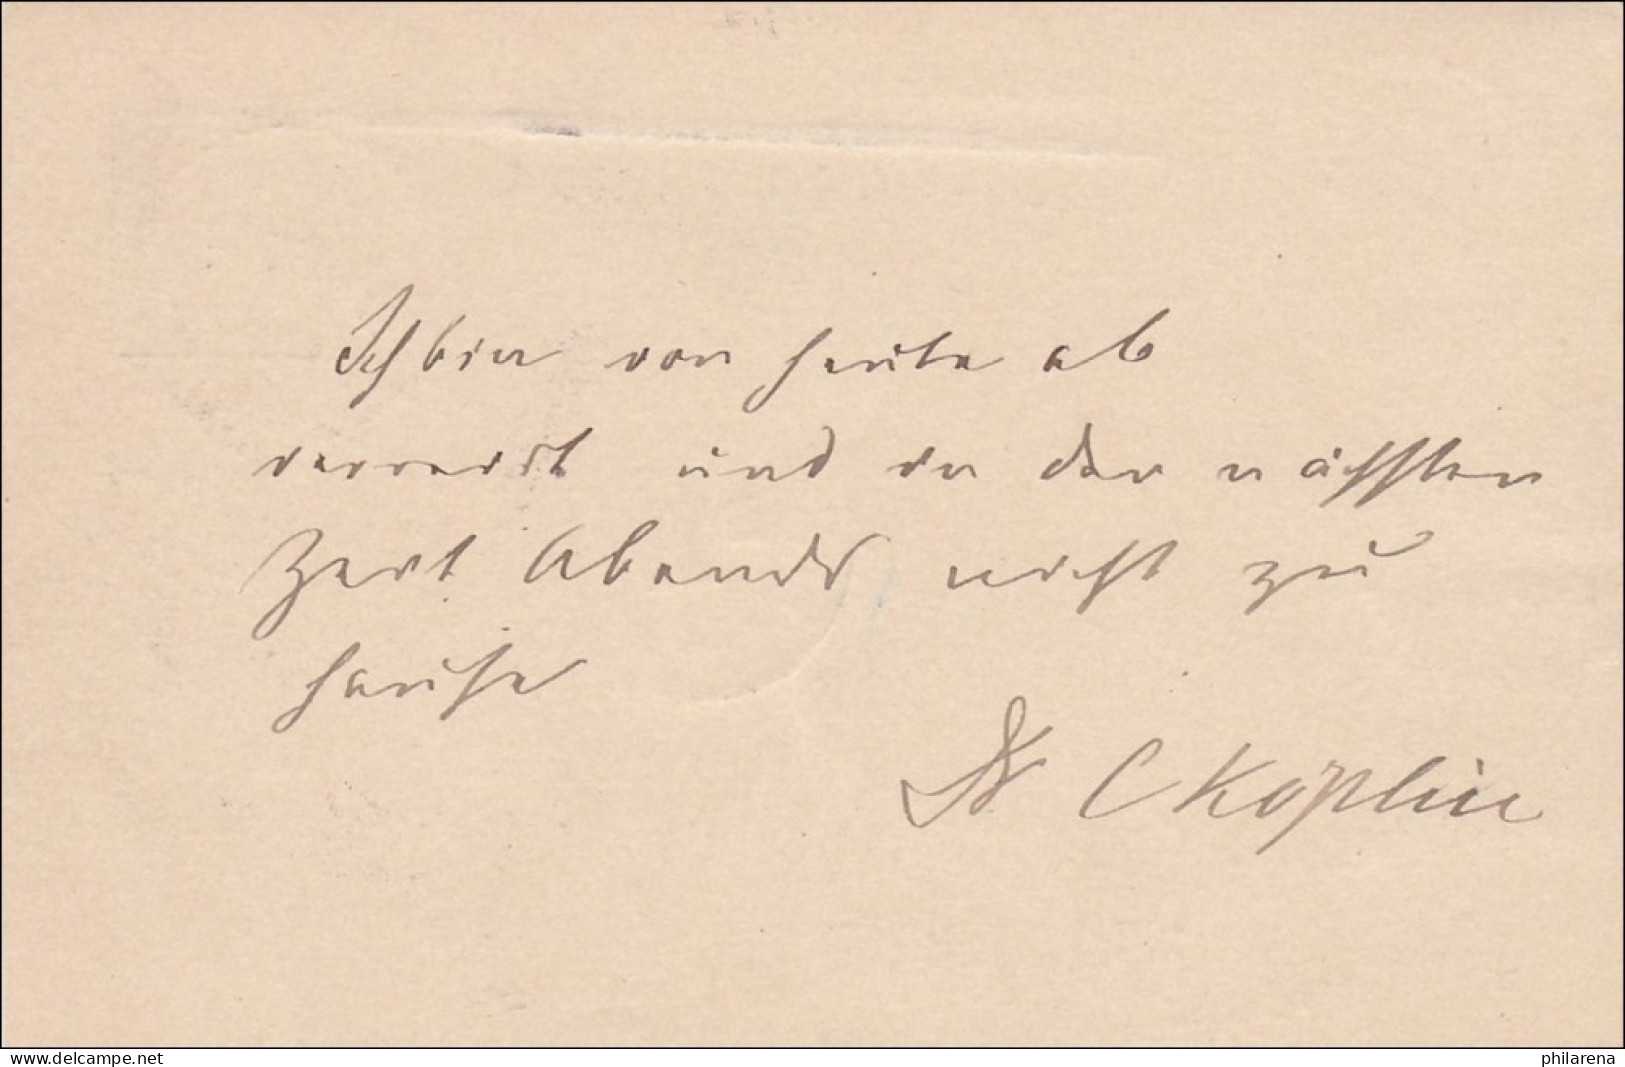 Ich bin von heute ab
verreist und in der nächsten
Zeit Abends nicht zu
hause
Dr C Köplin
www.delcampe.net
philarena